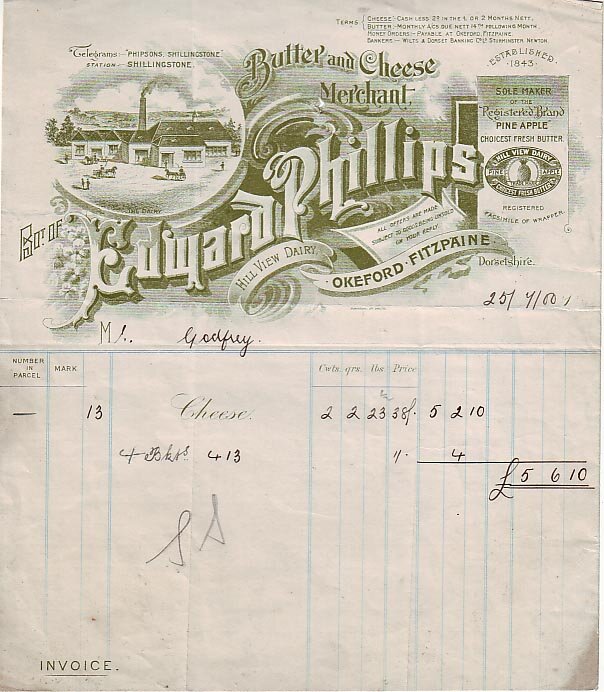 TERMS { CHEESE:- CASH LESS 2D IN THE £ OR 2 MONTHS NETT.
BUTTER:- MONTHLY A/CS DUE NETT 14TH FOLLOWING MONTH.
MONEY ORDERS:- PAYABLE AT OKEFORD, FITZPAINE.
BANKERS - WILTS & DORSET BANKING CO. LD STURMINSTER NEWTON.
Telegrams:- "PHIPSONS, SHILLINGSTONE"
STATION - SHILLINGSTONE.
Butter and Cheese
Merchant,
ESTABLISHED
1843
SOLE MAKER
OF THE
"Registered" Brand
PINE APPLE
CHOICEST FRESH BUTTER.
HILL VIEW DAIRY
PINE APPLE
CHOICEST FRESH BUTTER
REGISTERED
FACSIMILE OF WRAPPER.
THE DAIRY
BOT. OF
Edward Phillips
ALL OFFERS ARE MADE
SUBJECT TO GOODS BEING UNSOLD
ON YOUR REPLY.
HILL VIEW DAIRY,
OKEFORD-FITZPAINE.
Dorsetshire.
25/7/00
Mr. Godfrey.
NUMBER IN PARCEL MARK Cwts. qrs. lbs. Price
— 13 Cheese. 2 2 23 38/. 5 2 10
4 Bkts 4 13 1/. 4
£5 6 10
INVOICE.